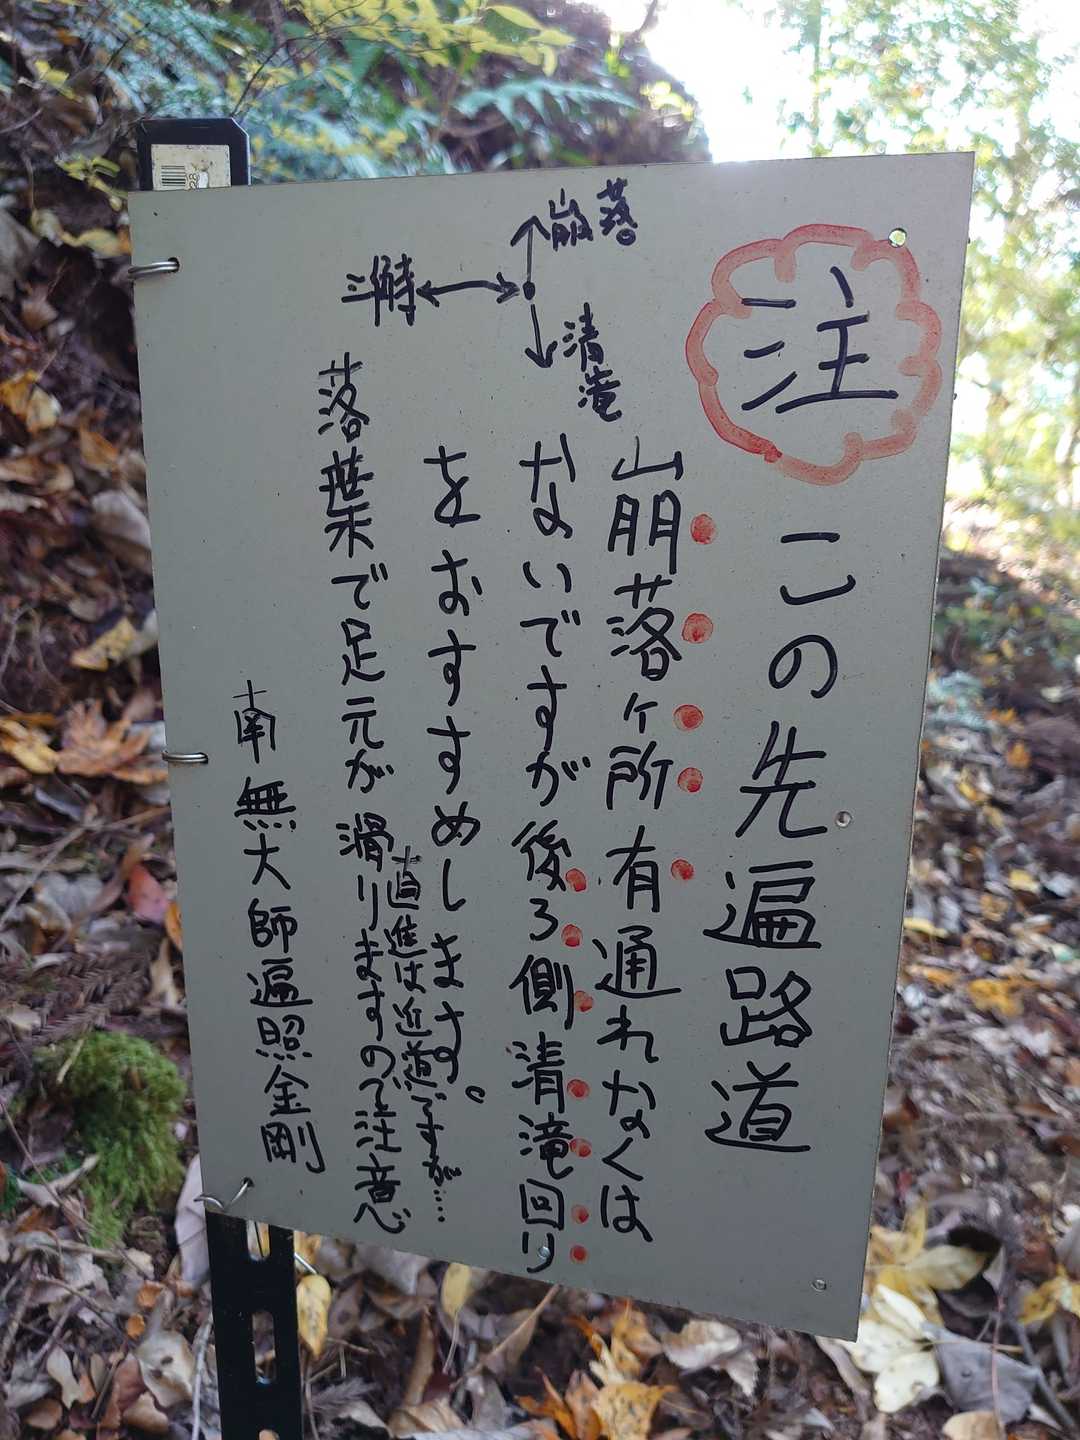 注
この先遍路道
崩落ヶ所有通れなくは
ないですが後ろ側清滝回り
をおすすめします。
直進は近道ですが…
落葉で足元が滑りますので注意
南無大師遍照金剛
崩落
清滝